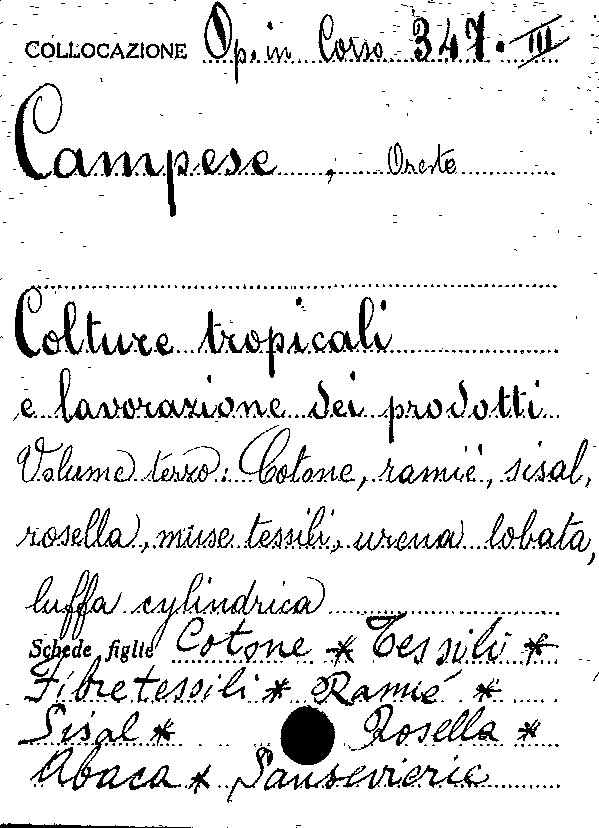 COLLOCAZIONE Op. in Corso 347. III
Campese, Oreste
Colture tropicali
e lavorazione dei prodotti
Volume terzo: Cotone, ramié, sisal,
rosella, muse tessili, urena lobata,
luffa cylindrica
Schede figlie Cotone * Tessili *
Fibre tessili * Ramié *
Sisal * Rosella *
Abaca * Sansevierie